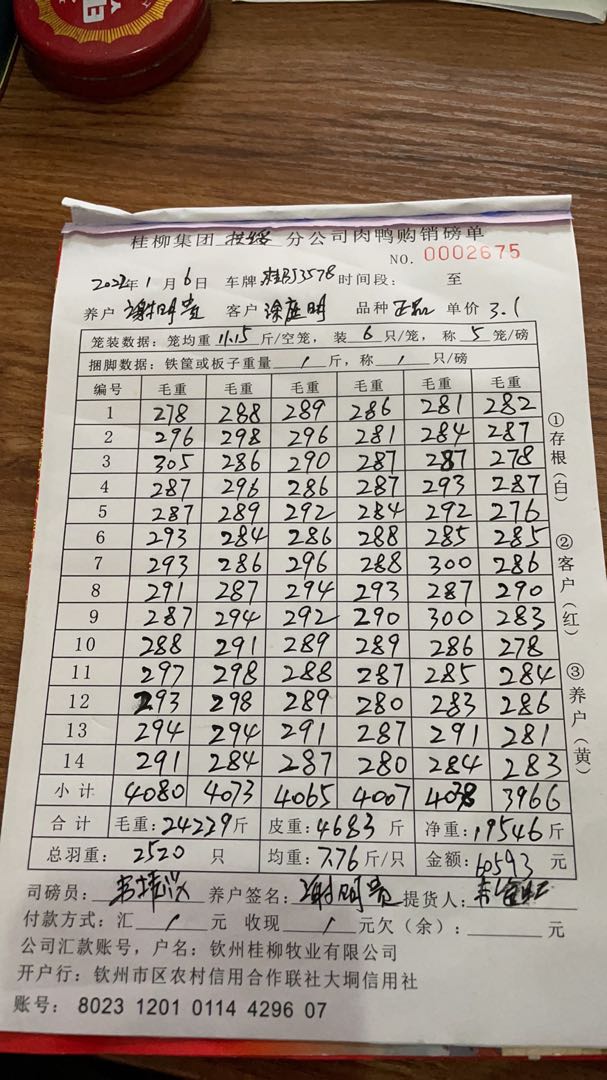 桂柳集团 扶绥 分公司肉鸭购销磅单
NO. 0002675
2022年1月6日 车牌 桂 3578 时间段： 至
养户 谢明贵 客户 涂庭明 品种 正品 单价 3.1
笼装数据：笼均重 11.15 斤/空笼，装 6 只/笼，称 5 笼/磅
捆脚数据：铁筐或板子重量 / 斤，称 / 只/磅
编号 毛重 毛重 毛重 毛重 毛重 毛重
1 278 288 289 286 281 282
2 296 298 296 281 284 287
3 305 286 290 287 287 278
4 287 296 286 287 293 287
5 287 289 292 284 292 276
6 293 284 286 288 285 285
7 293 286 296 288 300 286
8 291 287 294 293 287 290
9 287 294 292 290 300 283
10 288 291 289 289 286 278
11 297 298 288 287 285 284
12 293 298 289 280 283 286
13 294 294 291 287 291 281
14 291 284 287 280 284 283
小计 4080 4073 4065 4007 4038 3966
合计 毛重：24229斤 皮重：4683斤 净重：19546斤
总羽重： 2520 只 均重：7.76斤/只 金额：60593 元
司磅员： 养户签名：谢明贵 提货人：
付款方式：汇 / 元 收现 / 元欠（余）： 元
公司汇款账号，户名：钦州桂柳牧业有限公司
开户行：钦州市区农村信用合作联社大垌信用社
账号： 8023 1201 0114 4296 07
①存根（白）
②客户（红）
③养户（黄）